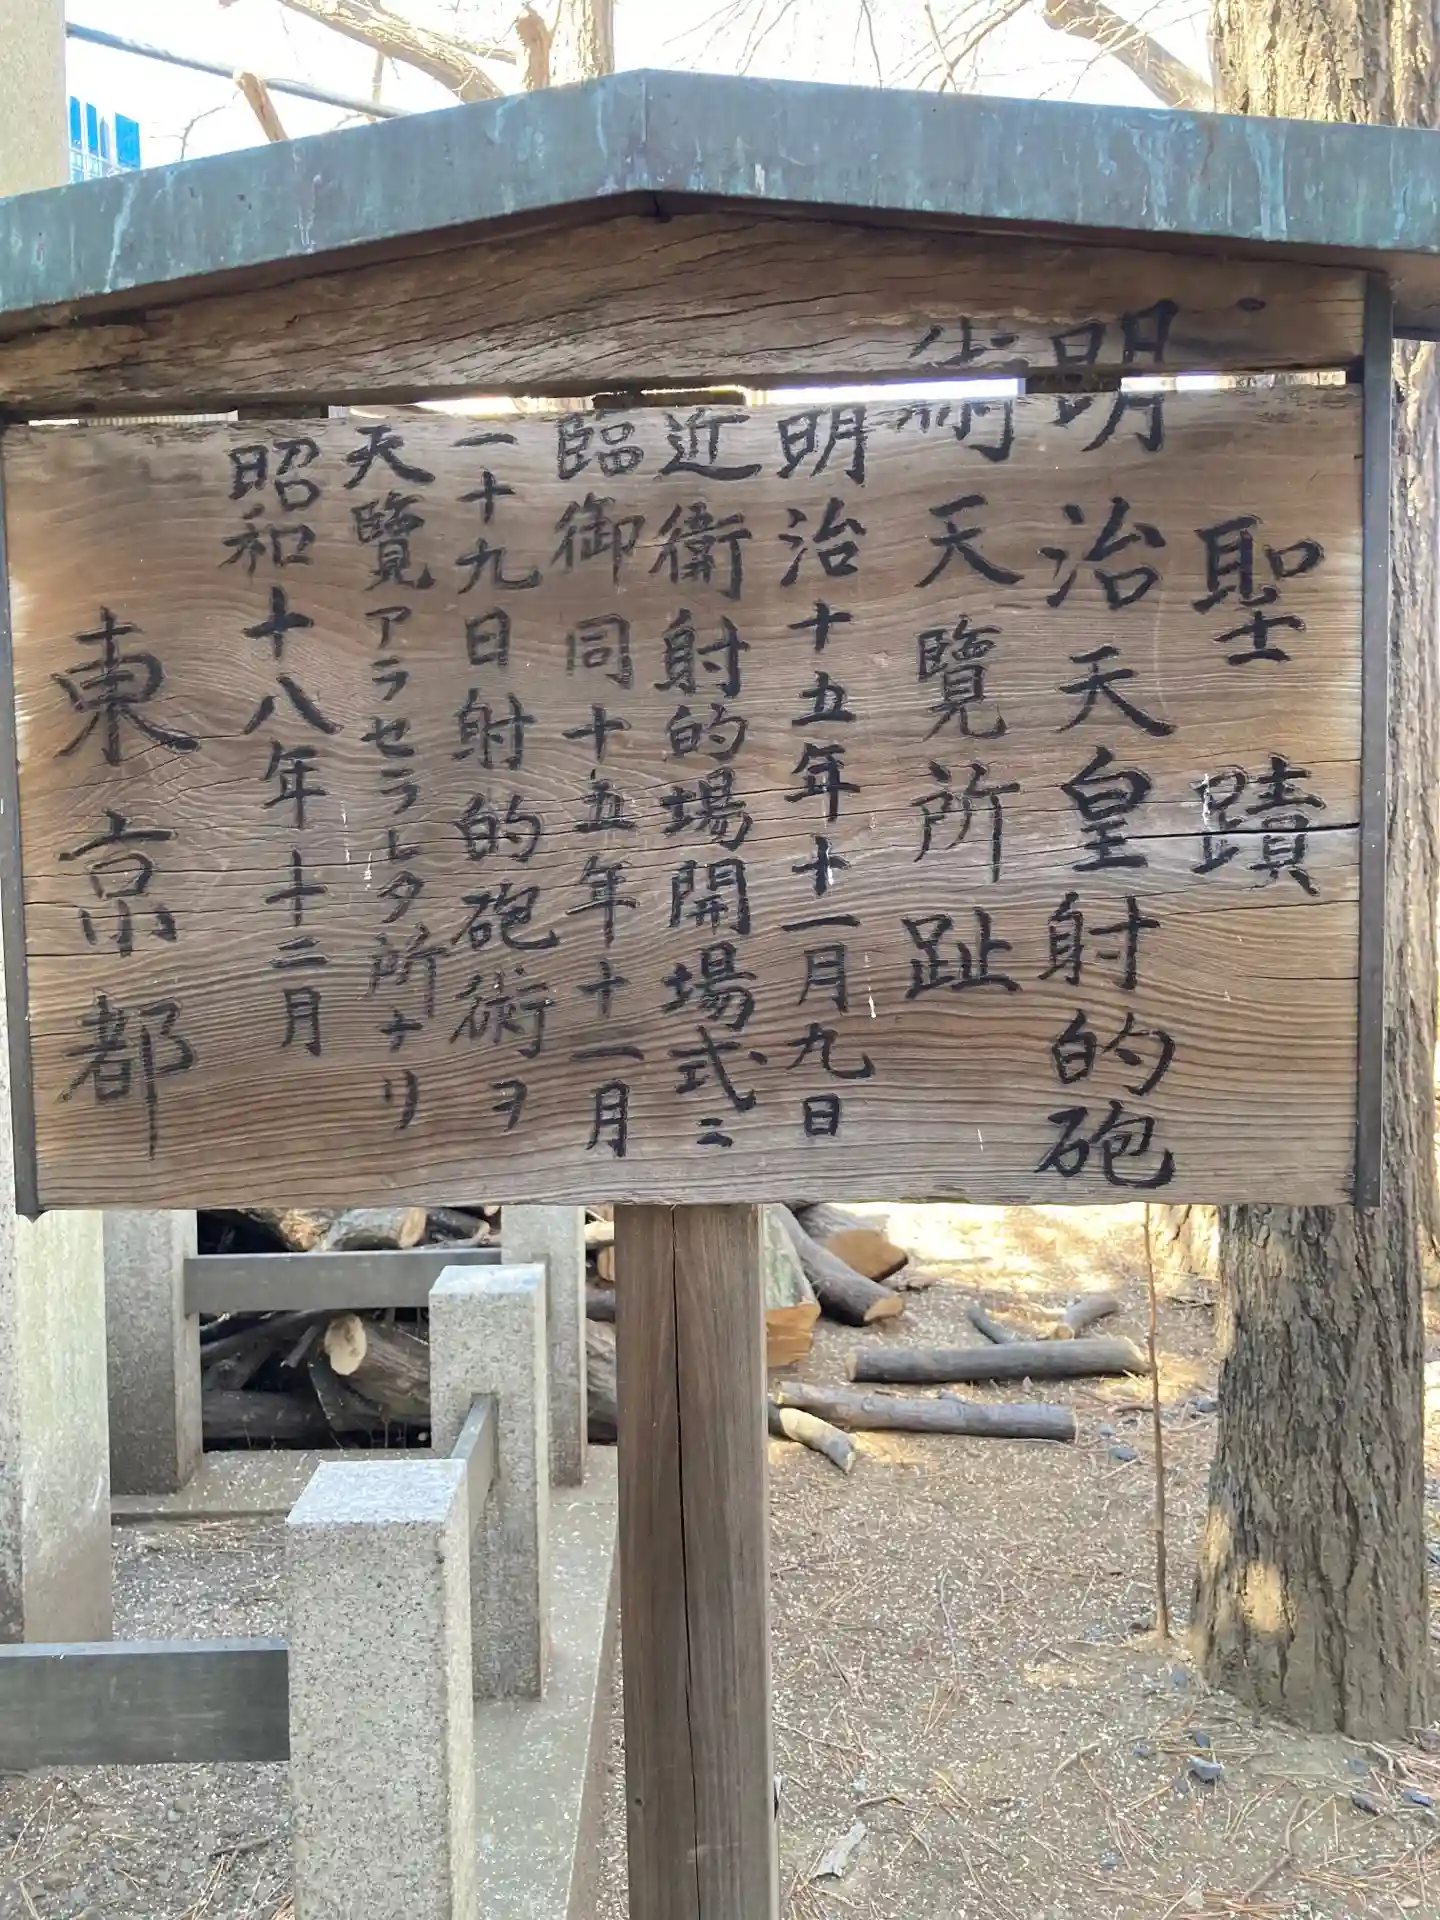 聖蹟
明治天皇射的砲
術天覽所趾
明治十五年十一月九日
近衞射的場開場式ニ
臨御同十五年十一月
一十九日射的砲術ヲ
天覽アラセラレタ所ナリ
昭和十八年十二月
東京都